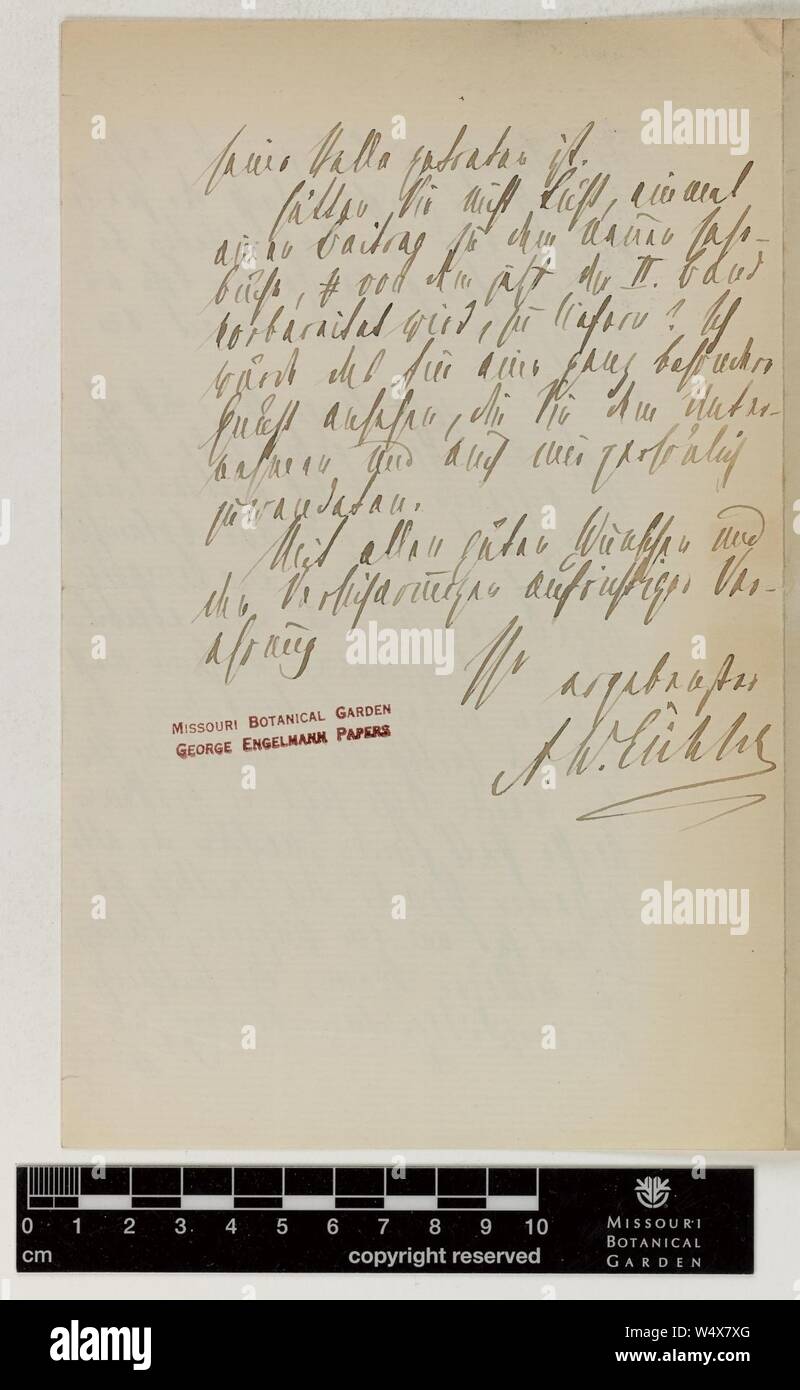 seine Stelle getreten ist.
Hätten Sie nicht Lust, einmal
einen Beitrag zu dem neuen Jahr-
buche, von dem jetzt der II. Band
vorbereitet wird, zu liefern? Ich
würde das für eine ganz besondere
Gunst ansehen, die Sie dem Unter-
nehmen und auch mir persönlich
zuwendeten.
Mit allen guten Wünschen und
den Versicherungen aufrichtiger Ver-
ehrung
Ihr ergebenster
A. W. Eichler
MISSOURI BOTANICAL GARDEN
GEORGE ENGELMANN PAPERS
0 1 2 3 4 5 6 7 8 9 10
cm
copyright reserved
MISSOURI
BOTANICAL
GARDEN
alamy
Image ID: W4X7XG
www.alamy.com